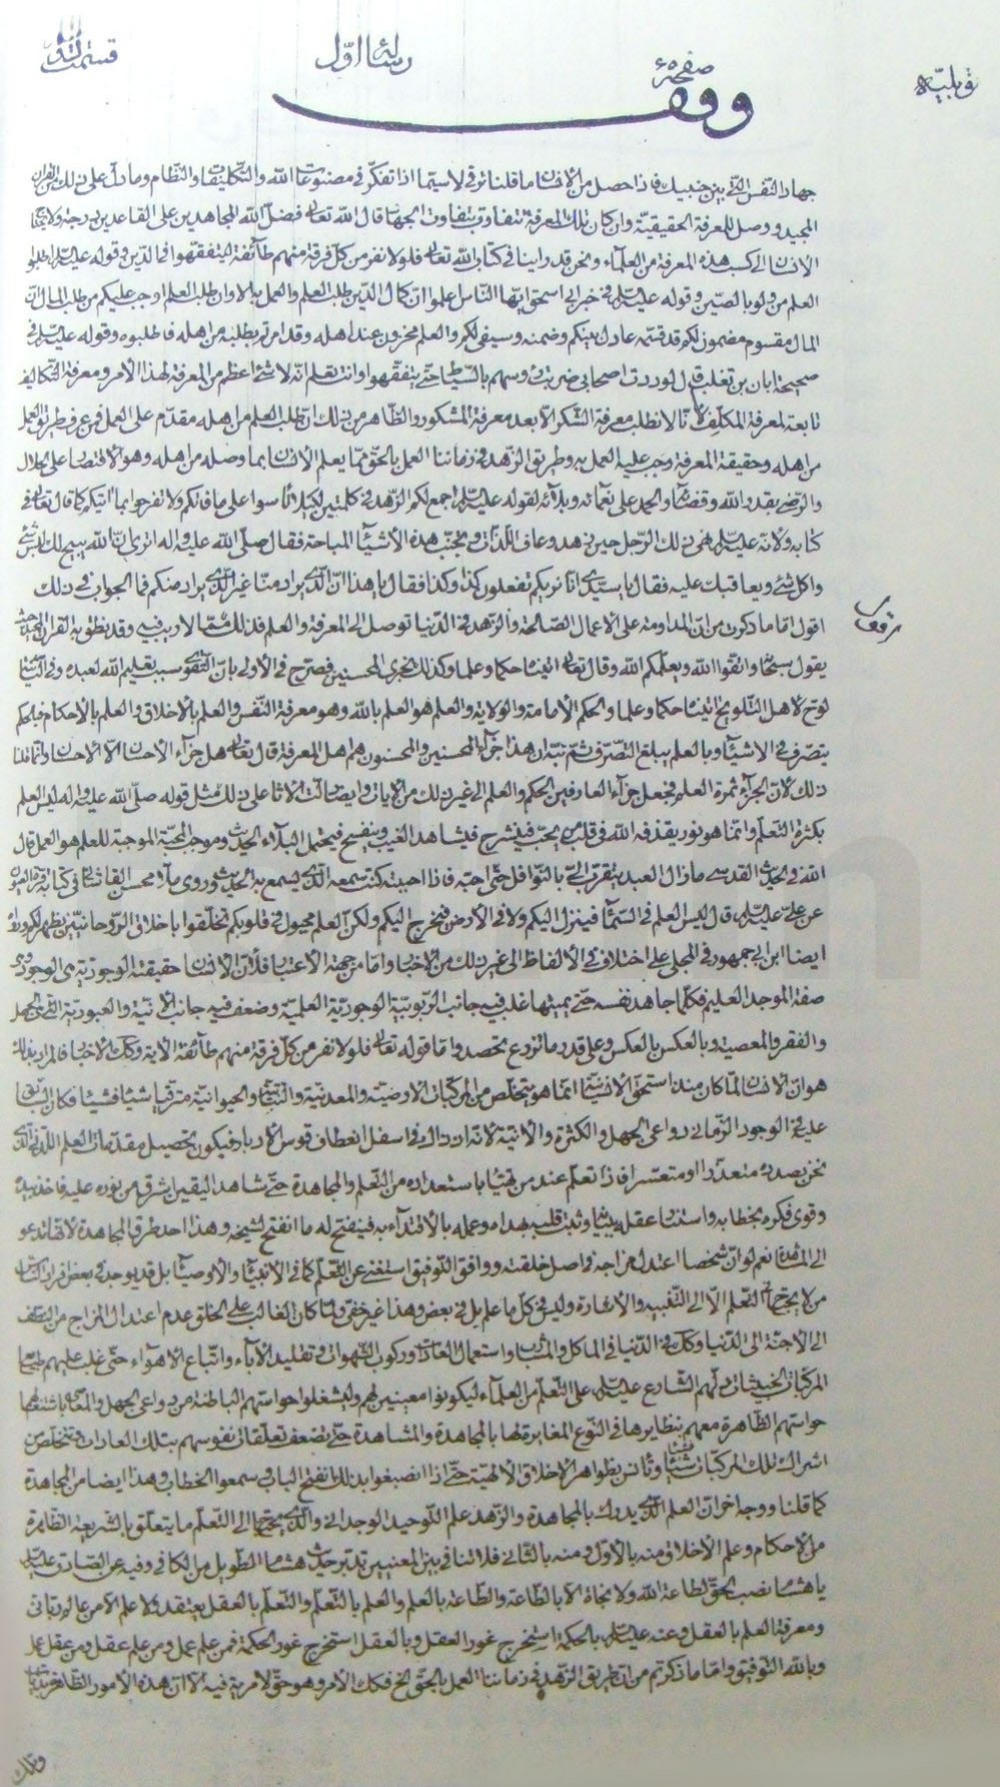 صفحه ٥
رسالة اوّل
قسمت
وقف
جهاد النفس التي بين جنبيك فاذا حصل من الانسان ما قلنا ترقى لاسيما اذا تفكّر في مصنوعات الله والتكليفات والنظام وما دلّ على ذلك من القران
المجيد ووصل للمعرفة الحقيقيّة وان كان تلك المعرفة تتفاوت بتفاوت الجهاد قال الله تعالى فضل الله المجاهدين على القاعدين درجة ولا يحتاج
الانسان الى كسب هذه المعرفة من العلماء ونحن قد راينا في كتاب الله تعالى فلولا نفر من كل فرقة منهم طائفة ليتفقهوا في الدين وقوله عليه السلام اطلبوا
العلم من ولو بالصين وقوله عليه السلام في خبر ابي اسحق ايّها الناس اعلموا انّ كمال الدّين طلب العلم والعمل به الا وان طلب العلم اوجب عليكم من طلب المال انّ
المال مقسوم مضمون لكم قد قسّمه عادل بينكم وضمنه وسيفي لكم والعلم مخزون عند اهله وقد امرتم بطلبه من اهله فاطلبوه وقوله عليه السلام في
صحيحة ابان بن تغلب قال لوددت اصحابي ضربت رؤسهم بالسّياط حتّى يتفقّهوا وانت تعلم انّه لا شئ اعظم من المعرفة لهذا الأمر ومعرفة التّكاليف
تابعة لمعرفة المكلّف لانّا لا نطلب معرفة الشكر الّا بعد معرفة المشكور والظّاهر من ذلك ان طلب العلم من اهله مقدّم على العمل فمن عرف طريق العمل
من اهله وحقيقة المعرفة وجب عليه العمل به وطريق الزّهد في زماننا العمل بالحقّ ممّا يعلم الانسان بما وصله من اهله وهو الاقتصار على الحلال
والرضى بقدر الله وقضائه والحمد على نعمائه وبلائه لقوله عليه السلام اجمع لكم الزّهد في كلمتين لكيلا تاسوا على ما فاتكم ولا تفرحوا بما اتيكم كما قال تعالى في
كتابه ولانّه عليه السلام نهى ذلك الرّجل حين زهد وعاف اللّذات وتجنّب هذه الأشياء المباحة فقال صلّى الله عليه واله اترى انّ الله يبيح لك لبس شئ
واكل شئ ويعاقبك عليه فقال يا سيّدي انا نريكم تفعلون كذا وكذا فقال يا هذا انّ الّذي يراد منّا غير الّذي يراد منكم فما الجواب في ذلك
اقول امّا ما ذكرت من انّ المداومة على الأعمال الصّالحة والزّهد في الدّنيا توصل الى المعرفة والعلم فذلك ممّا لا ريب فيه وقد نطق به القران المجيد حيث
يقول سبحانه واتّقوا الله ويعلّمكم الله وقال تعالى اتيناه حكما وعلما وكذلك نجزي المحسنين فصرّح في الأولى بانّ التّقوى سبب تعليم الله لعبده وفي الثانية
لوّح لأهل التّلويح اتيناه حكما وعلما والحكم الأمامة والولاية والعلم هو العلم بالله وهو معرفة النّفس والعلم بالأخلاق والعلم بالأحكام فبالحكم
يتصرّف في الاشياء وبالعلم يبلغ التّصرّف ثم نبّه ان هذا جزآء المحسنين والمحسنون هم اهل المعرفة قال تعالى هل جزآء الأحسان الّا الأحسان وانّما قلنا
ذلك لأنّ الجزآء ثمرة العلم فجعل جزآء العارفين الحكم والعلم الى غير ذلك من الايات وايضا دلّت الاثار على ذلك مثل قوله صلّى الله عليه واله ليس العلم
بكثرة التّعلّم وانّما هو نور يقذفه الله في قلب من يحبّ فينشرح فيشاهد الغيب وينفسح فيحتمل البلاء الحديث وموجب المحبّة الموجبة للعلم هو العمل قال
الله في الحديث القدسي ما زال العبد يتقرّب اليّ بالنّوافل حتّى احبّه فاذا احببته كنت سمعه الّذي يسمع به الحديث وروى ملّا محسن القاشاني في كتابه قرّة العيون
عن عليّ عليه السلام قال ليس العلم في السّماء فينزل اليكم ولا في الأرض فيخرج اليكم ولكن العلم مجبول في قلوبكم تخلّقوا باخلاق الرّوحانيّين يظهر لكم ورواه
ايضا ابن ابي جمهور في المجلي على اختلاف في الألفاظ الى غير ذلك من الأخبار وامّا من جهة الأعتبار فلأنّ الأنسان حقيقته الوجود
صفة الموجد العليم فكلّما جاهد نفسه حتّى يميتها غلب فيه جانب الرّبوبيّة الوجوديّة العلميّة وضعف فيه جانب الأنيّة والعبوديّة الّتي هي الجهل
والفقر والمعصية وبالعكس بالعكس وعلى قدر ما تزرع تحصد وامّا قوله تعالى فلولا نفر من كلّ فرقة منهم طآئفة الاية وكذا الأخبار فالمراد بذلك
هو انّ الأنسان لمّا كان منذ استحقّ الأنسانيّة انّما هو يتخلّص من المركّبات الارضيّة والمعدنيّة والنّباتيّة والحيوانيّة مترقّيا شيئا فشيئا فكان السّابق
عليه في الوجود الزّماني دواعي الجهل والكثرة والأنيّة لانّه ان ذاك في اسفل انعطاف قوس الأدبار فيكون تحصيل مقدّمات العلم اللّدني الّذي
نحن بصدده متعذّرا او متعسّرا فاذا تعلّم عند من تهيّا باستعداده من التّعلّم والمجاهدة حتّى شاهد اليقين اشرق من نوره عليه فاخذ بيده
وقوى فكره بخطابه واستنار عقله ببيانه وثبت قلبه بهداه وعمله بالأقتدآء به فينفتح له ما انفتح لشيخه وهذا احد طرق المجاهدة لانّها تدعو
الى المشاهدة نعم لو انّ شخصا اعتدل مزاجه في اصل خلقته ووافق التّوفيق استغنى عن التّعلّم كما في الأنبياء والأوصياء بل قد يوجد في بعض افراد النّاس
من لا يحتاج في التّعلّم الّا الى التّنبيه والأشارة وليس في كلّ ما علم بل في بعض وهذا غير خفي ولمّا كان الغالب على الخلق عدم اعتدال المزاج من النّطف
الى الأجنّة الى الدّنيا وكذلك في الدّنيا في الماكل والمشارب واستعمال العادات وركوب الشّهوات وتقليد الأبآء واتّباع الأهوآء حتّى غلب عليهم طبايع
المركّبات الخبيثات دلّهم الشّارع عليه السلام على التّعلّم من العلمآء ليكونوا معينين لهم وليشغلوا حواسّهم الباطنة من دواعي الجهل والمعاصي باشتغال
حواسّهم الظّاهرة معهم بنظايرها في النّوع المغايرة لها بالمجاهدة والمشاهدة حتّى تضعف تعلّقات نفوسهم بتلك العادات وتتخلّص من
اشراك تلك المركّبات شيئا فشيئا وتانس بظواهر الأخلاق الألهيّة حتّى اذا انصبغوا بذلك انفتح الباب وسمعوا الخطاب وهذا ايضا من المجاهدة
كما قلنا ووجه اخر انّ العلم الّذي يدرك بالمجاهدة والزّهد علم التّوحيد الوجداني والّذي يحتاج الى التّعلّم ما يتعلّق بالشريعة الظّاهرة
من الأحكام وعلم الأخلاق منه بالأوّل ومنه بالثّاني فلا تنافي بين المعنيين تدبّر حديث هشام الطّويل من الكافي وفيه عن الصّادق عليه السلام
يا هشام نصب الحقّ لطاعة الله ولا نجاة الّا بالطّاعة والطّاعة بالعلم والعلم بالتّعلّم والتّعلّم بالعقل يعتقد ولا علم الّا من عالم ربّاني
ومعرفة العلم بالعقل وعنه عليه السلام بالحكمة استخرج غور العقل وبالعقل استخرج غور الحكمة فمن علم عمل ومن علم عقل ومن عقل عمل
وبالله التّوفيق وامّا ما ذكرتم من انّ طريق الزّهد في زماننا العمل بالحقّ الخ فكذلك الأمر وهو حقّ لا مرية فيه الّا انّ هذه الأمور الظّاهرة
وتلك